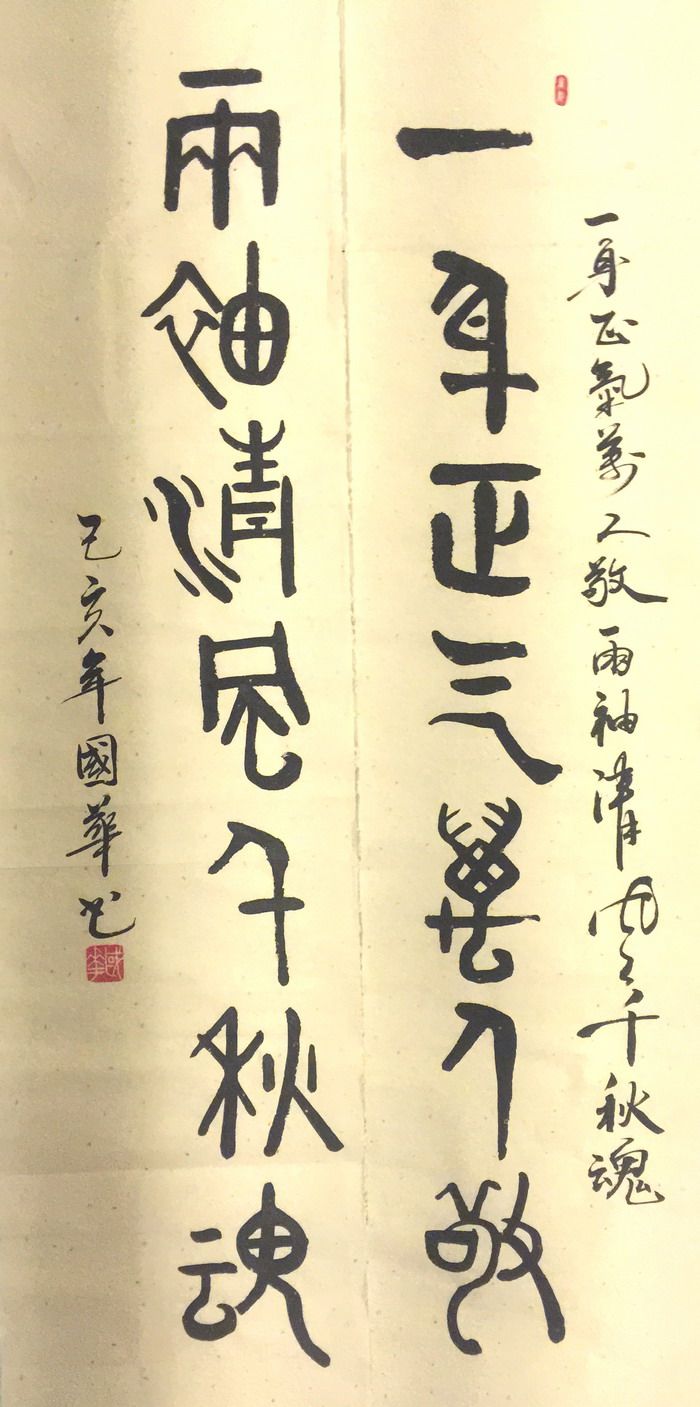 一身正气萬人敬
兩袖清風千秋魂
一身正氣萬人敬兩袖清風千秋魂
己亥年國華书
國華